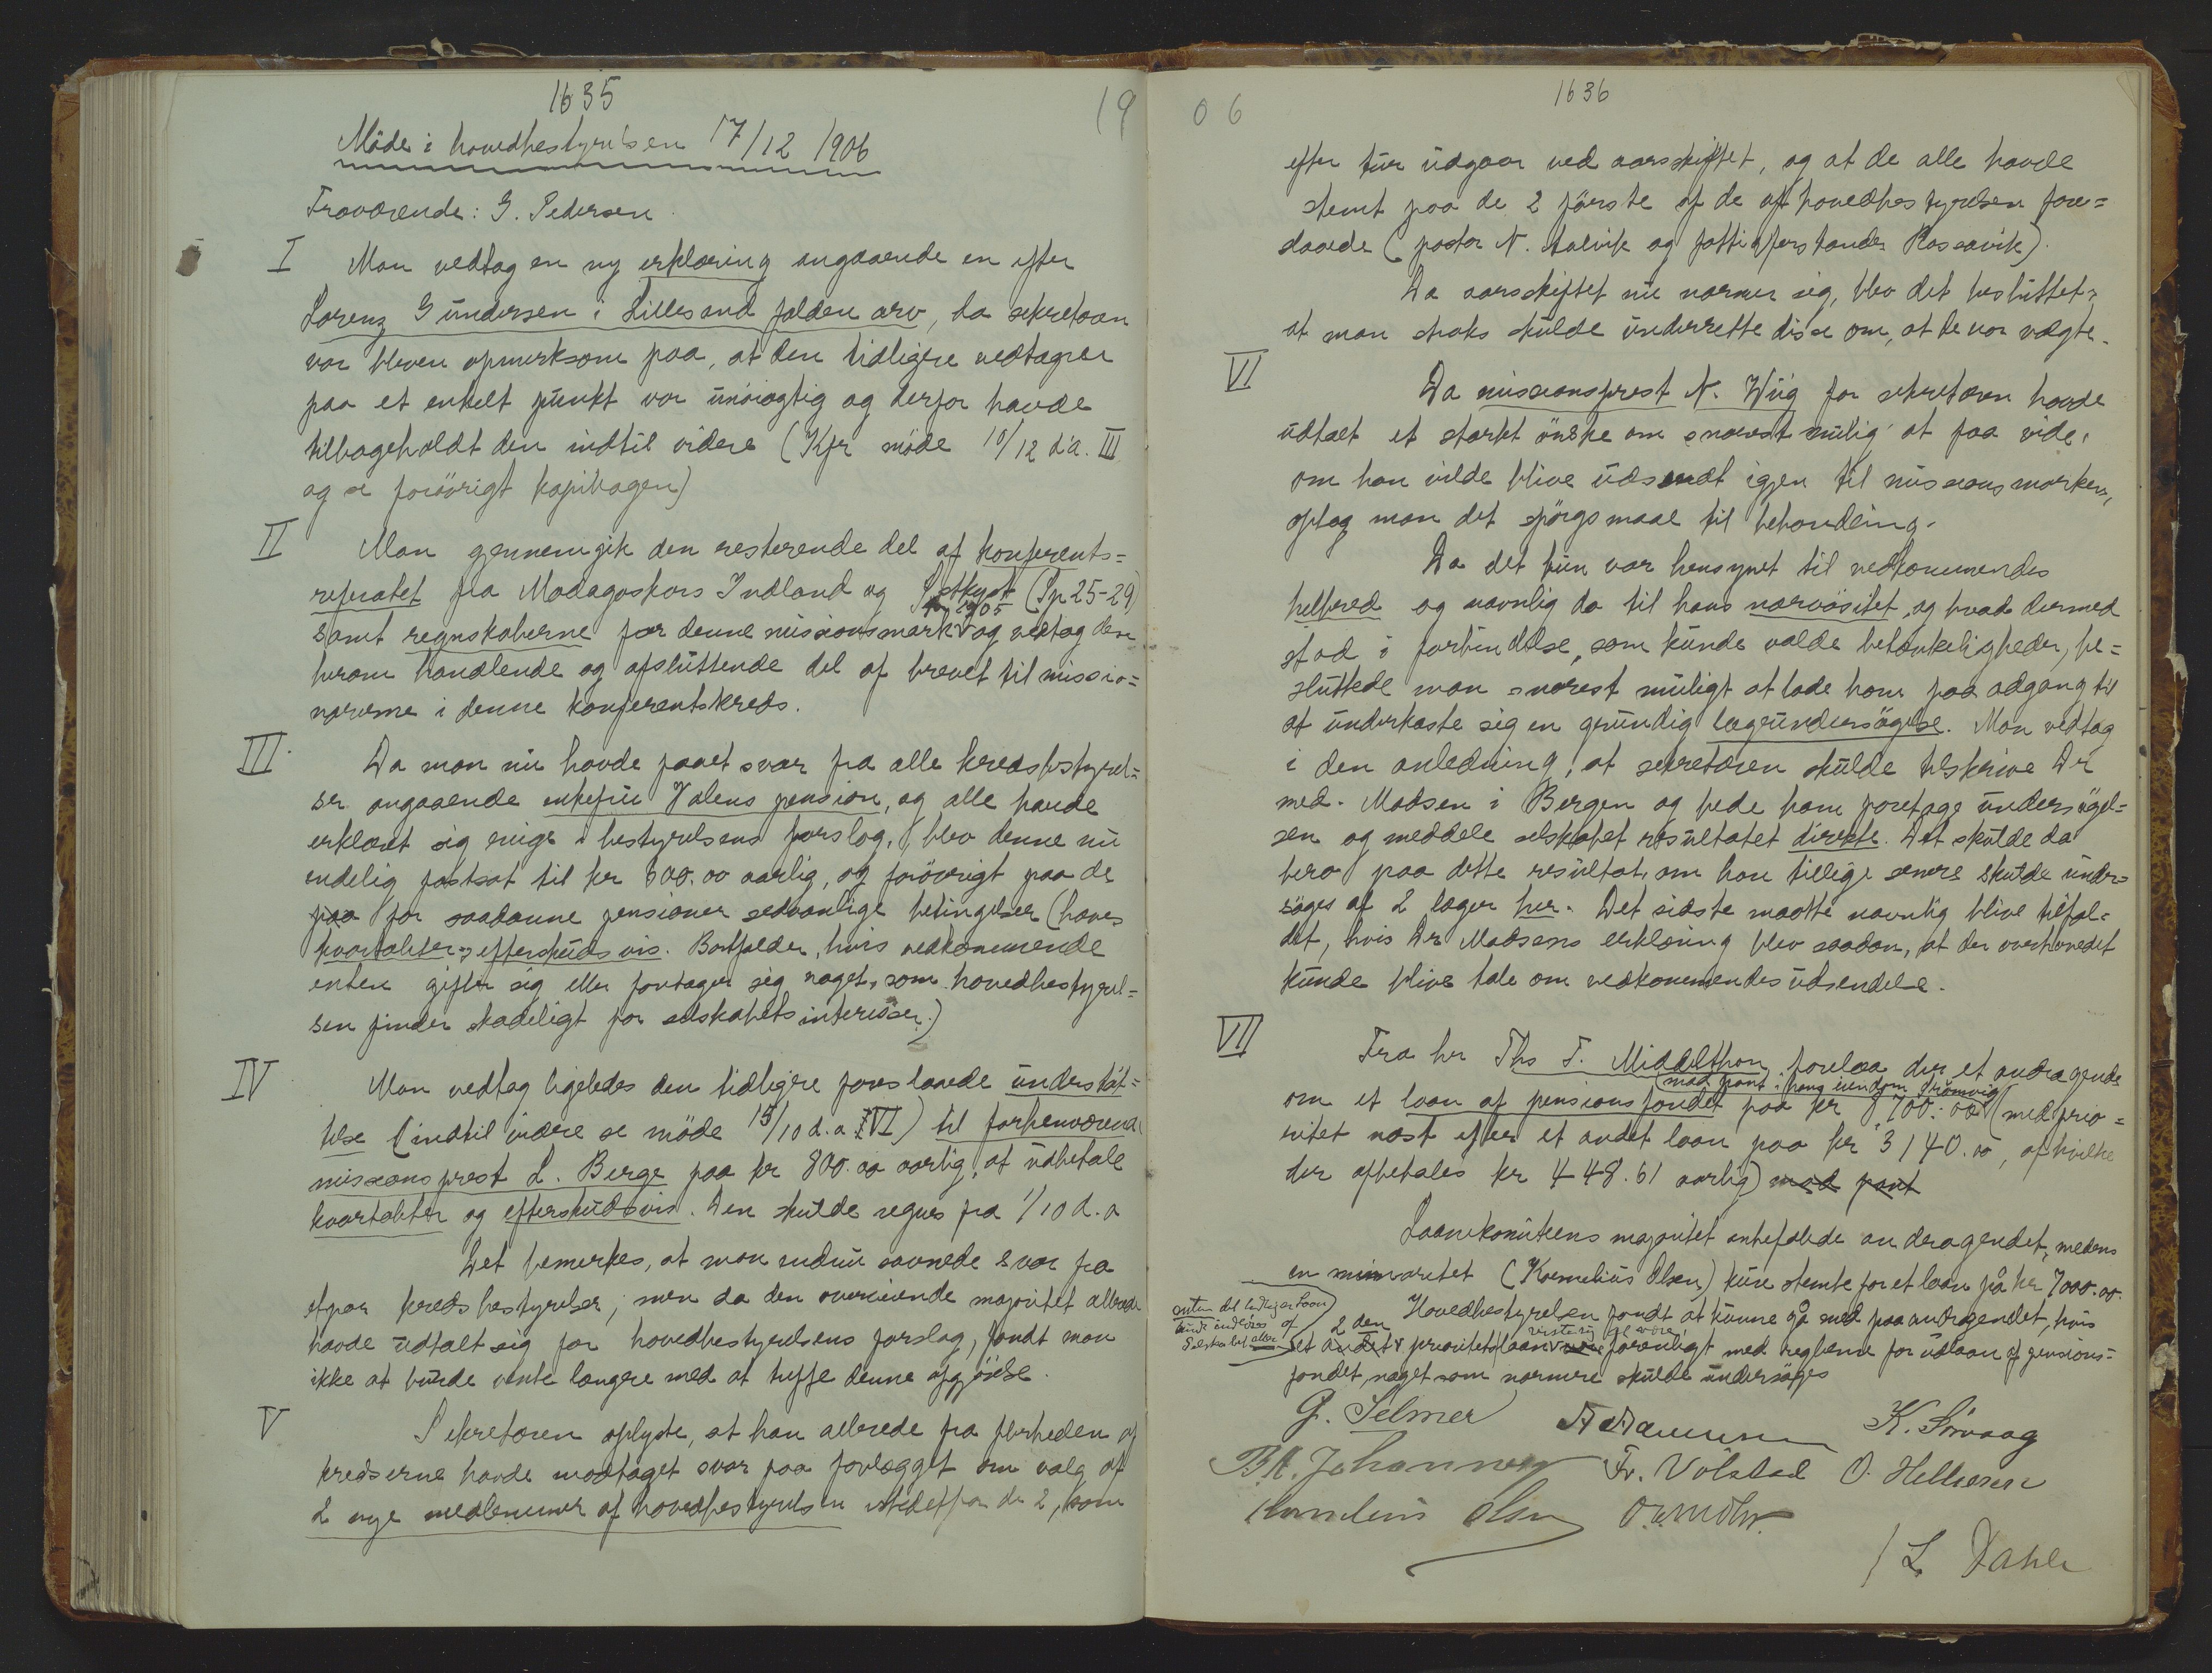 1635
19
Möde i hovedbestyrelsen 17/12 1906
Fraværende: G. Pedersen.
I Man vedtog en ny erklæring angaaende en efter
Lorenz Gundersen i Lillesand falden arv, da sekretæren
var bleven opmerksom paa, at den tidligere vedtagne
paa et enkelt punkt var unöiagtig og derfor havde
tilbageholdt den indtil videre (Kfr möde 10/12 d.a. III
og se forövrigt kopibogen)
II Man gjennemgik den resterende del af konferents=
referatet fra Madagaskars Indland og Östkyst (Sp 25-29)
for 1905
samt regnskaberne for denne missionsmark og vedtog den
herom handlende og afsluttende del af brevet til missio=
nærerne i denne konferentskreds.
III. Da man nu havde faaet svar fra alle kredsbestyrel=
ser angaaende enkefru Valens pension, og alle havde
erklæret sig enige i bestyrelsens forslag, blev denne nu
endelig fastsat til kr 800.00 aarlig, og forövrigt paa de
paa for saadanne pensioner sedvanlige betingelser (haves
kvartaliter, efterskudsvis. Bortfalder, hvis vedkommende
enten gifter sig eller foretager sig noget, som hovedbestyrel=
sen finder skadeligt for selskabets interesser.)
IV Man vedtog ligeledes den tidligere foreslaaede understöt=
telse (indtil videre se möde 15/10 d.a. VI) til forhenværende
missionsprest L. Berge paa kr 800.00 aarlig, at udbetale
kvartaliter og efterskudsvis. Den skulde regnes fra 1/10 d.a
Det bemerkes, at man endnu savnede svar fra
et par kredsbestyrelser; men da den overveiende majoritet allerede
havde udtalt sig for hovedbestyrelsens forslag, fandt man
ikke at burde vente længere med at træffe denne afgjörelse.
V Sekretæren oplyste, at han allerede fra flerheden af
kredserne havde modtaget svar paa forlægget om valg af
2 nye medlemmer af hovedbestyrelsen istedetfor de 2, som
06
1636
efter tur udgaar ved aarsskiftet, og at de alle havde
stemt paa de 2 förste af de af hovedbestyrelsen fore=
slaaede (pastor N. Astrik og fattigforstander Rossavik).
Da aarsskiftet nu nærmer sig, blev det besluttet,
at man straks skulde underrette disse om, at de var valgte.
VI Da missionsprest N. Wiig for sekretæren havde
udtalt et sterkt önske om snarest mulig at faa vide,
om han vilde blive udsendt igjen til missionsmarken,
optog man det spörgsmaal til behandling.
Da det kun var hensynet til vedkommendes
helbred og navnlig da til hans nervösitet, og hvad dermed
stod i forbindelse, som kunde volde betænkeligheder, be=
sluttede man snarest muligt at lade ham faa adgang til
at underkaste sig en grundig lægeundersögelse. Man vedtog
i den anledning, at sekretæren skulde tilskrive Dr
med. Madsen i Bergen og bede ham foretage undersögel=
sen og meddele selskabet resultatet direkte. Det skulde da
bero paa dette resultat, om han tillige senere skulde under=
söges af 2 læger her. Det sidste maatte navnlig blive tilfæl=
det, hvis Dr Madsens erklæring blev saadan, at der overhovedet
kunde blive tale om vedkommendes udsendelse.
VII Fra hr Ths T. Middelthon forelaa der et andragende
(mod pant i hans eiendom Strömvig
om et laan af pensionsfondet paa kr 8700.00 (med prio=
ritet næst efter et andet laan paa kr 3140.00, af hvilke
der afbetales kr 448.61 aarlig) mod pant
Laanekomiteens majoritet anbefalede andragendet, medens
en minoritet (Kornelius Olsen) kun stemte for et laan på kr 7000.00.
Hovedbestyrelsen fandt at kunne gå ind paa andragendet, hvis
enten det tidligere laan
kunde indlöses af
Selskabet eller
2 den
viste sig at være
et andet prioritets laan var foreneligt med reglerne for udlaan af pensions=
fondet, noget som nærmere skulde undersöges
G. Selmer
K. Sörvaag
B. A. Johannesen Fr. Völstad O. Hellesen
Kornelius Olsen
/ L. Dahle